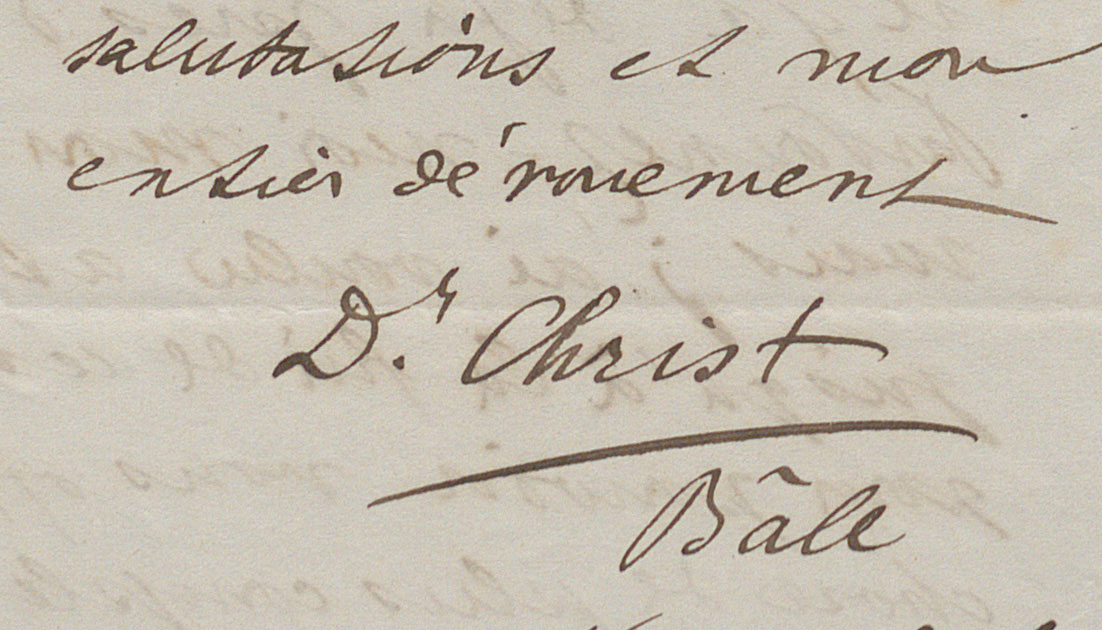 salutations et mon
entier dévouement
Dr. Christ
Bâle